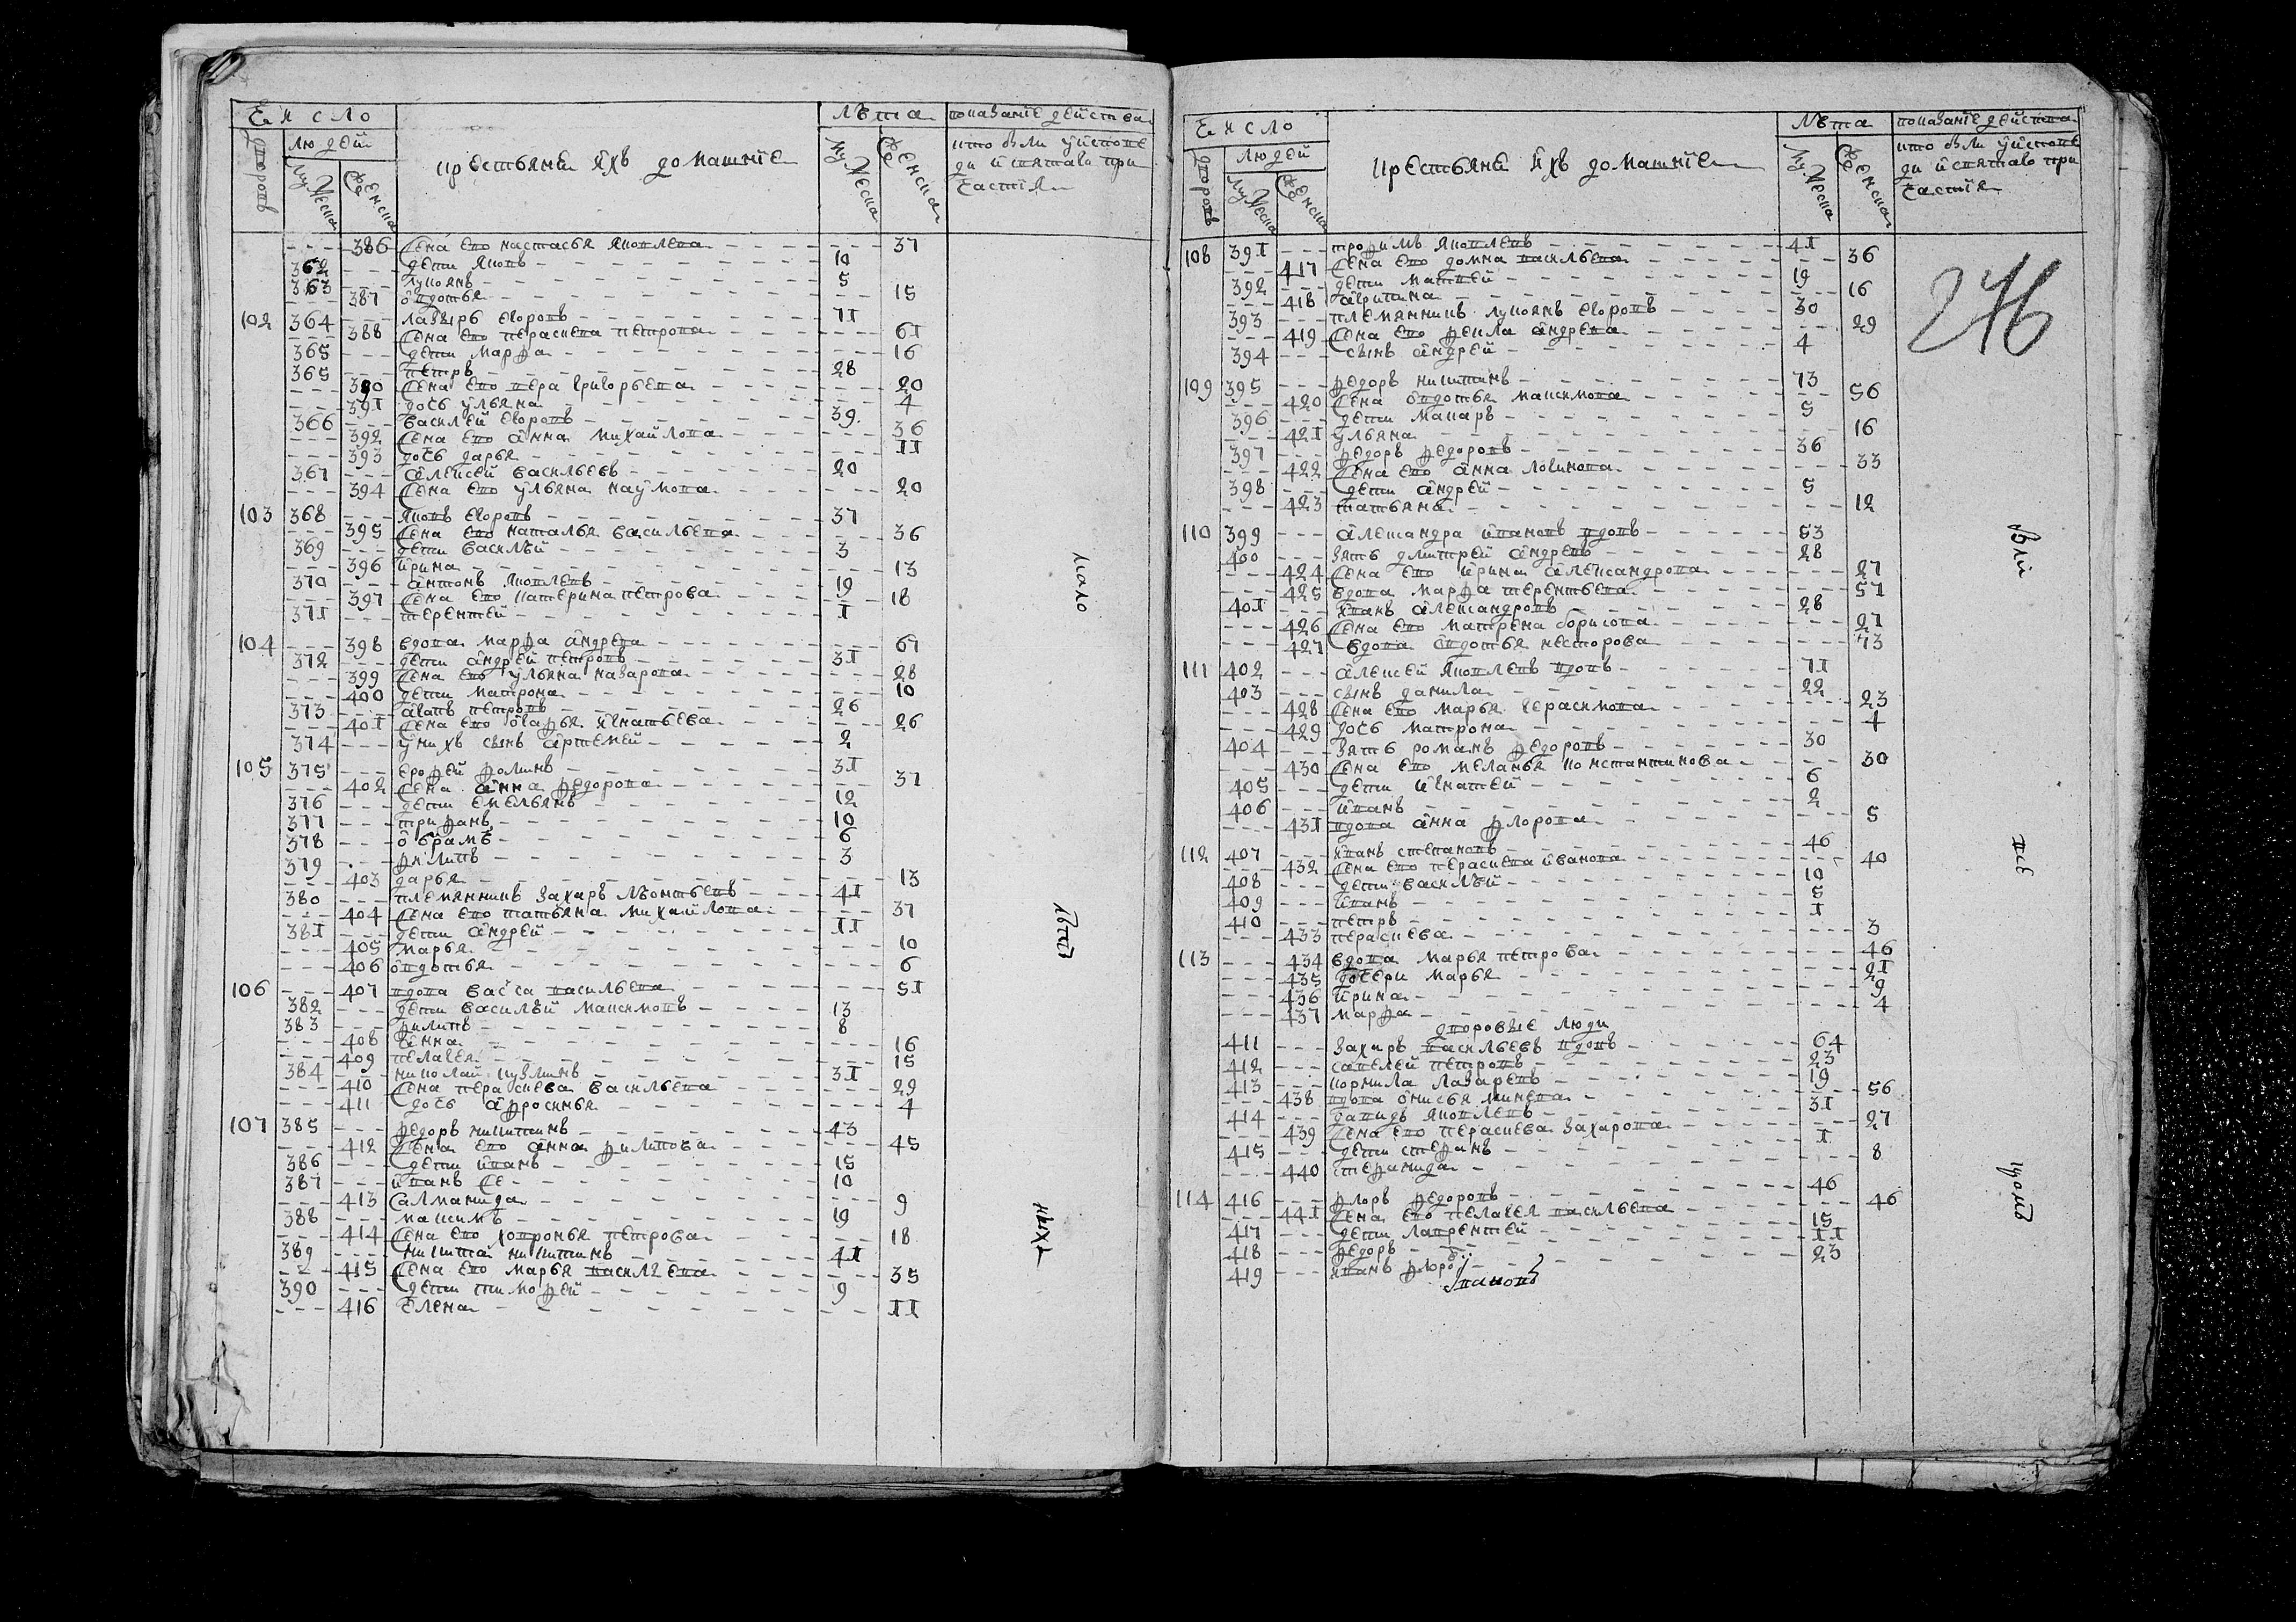 Число
людей
дворовъ
мужеска
женска
крестьяне и ихъ домашние
лѣта
мужеска
женска
показание действа
кто были у исповеди и святаго причастия
386 жена ево настасья яковлева 37
362 дети яковъ 10
363 лукоянъ 5
387 овдотья 15
102 364 лазырь егоровъ 71
388 жена ево пераскева петрова 61
365 дети марфа 16
365 петръ 28
390 жена ево вера григорьева 20
391 дочь ульяна 4
366 василей егоровъ 39
392 жена ево анна михайлова 36
393 дочь дарья 11
367 алексей васильевъ 20
394 жена ево ульяна наумова 20
103 368 яковъ егоровъ 37
395 жена ево наталья васильева 36
369 дети василѣй 3
396 ирина 13
370 антонъ яковлевъ 19
397 жена ево катерина петрова 18
371 терентей 1
104 398 вдова марфа андреева 67
372 дети андрей петровъ 31
399 жена ево ульяна назарова 28
400 дети матрона 10
373 агапъ петровъ 26
401 жена ево огафья игнатьева 26
374 у нихъ сынъ артемей 2
105 375 ерофей фоминъ 31
402 жена анна федорова 37
376 дети емельянъ 12
377 трифанъ 10
378 обрамъ 6
379 филипъ 3
403 дарья 13
380 племянникъ захаръ лѣонтьевъ 41
404 жена ево татьяна михайлова 37
381 дети андрей 11
405 марья 10
406 овдотья 6
106 407 вдова васса васильева 51
382 дети василѣй максимовъ 13
383 филипъ 8
408 анна 16
409 пелагея 15
384 николай кузминъ 31
410 жена пераскева васильева 29
411 дочь афросинья 4
107 385 федоръ никитинъ 43
412 жена ево анна филипова 45
386 дети иванъ 15
387 иванъ же 10
413 салманида 9
388 максимъ 19
414 жена ево ховронья петрова 18
389 никита никитинъ 41
415 жена ево марья василева 35
390 дети тимофей 9
416 елена 11
мало
летныхъ
Число
людей
дворовъ
мужеска
женска
крестьяне и ихъ домашние
лѣта
мужеска
женска
показание действа
кто были у исповеди и святаго причастия
276
108 391 трофимъ яковлевъ 41
417 жена ево домна васильева 36
392 дети матвей 19
418 акулина 16
393 племянникъ лукоянъ егоровъ 30
419 жена ево фекла андреева 29
394 сынъ андрей 4
109 395 федоръ никитинъ 73
420 жена овдотья максимова 56
396 дети макаръ 5
421 ульяна 16
397 федоръ федоровъ 36
422 жена ево анна логинова 33
398 дети андрей 5
423 татьяна 12
110 399 александра ивановъ вдовъ 53
400 зять дмитрей андревъ 28
424 жена ево ирина александрова 27
425 вдова марфа терентьева 51
401 иванъ александровъ 28
426 жена ево матрена борисова 27
427 вдова овдотья несторова 73
111 402 алексей яковлевъ вдовъ 71
403 сынъ данила 22
428 жена ево марья герасимова 23
429 дочь матрона 4
404 зять романъ федоровъ 30
430 жена ево меланья константинова 30
405 дети игнатей 6
406 иванъ 2
431 вдова анна флорова 5
112 407 иванъ степановъ 46
432 жена ево пераскева иванова 40
408 дети василѣй 10
409 иванъ 5
410 петръ 1
433 пераскева 3
113 434 вдова марья петрова 46
435 дочери марья 21
436 ирина 9
437 марфа 4
дворовые люди
411 захаръ васильевъ вдовъ 64
412 савелей петровъ 23
413 кормила лазаревъ 19
438 вдова онисья минеева 56
414 давидъ яковлевъ 31
439 жена ево пераскева захарова 27
415 дети стефанъ 1
440 степанида 8
114 416 флоръ федоровъ 46
441 жена ево пелагея васильева 46
417 дети лаврентей 15
418 федоръ 11
419 иванъ флоро 23
Были
все
кроме